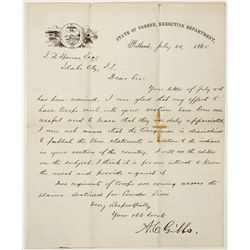 STATE OF OREGON, EXECUTIVE DEPARTMENT,
Portland, July 24, 1865
Esq.
Idaho City, I.T.
Dear Sir:
Your letter of July 10th
has been received. I am glad that my effort to
have troops sent into your section have been
successful need to learn that they are duly appreciated.
I am not aware that the Oregonian is disinclined
to publish the true statements in relation to the indians
in your section of the country. I will see the editor
on the subject. I think it is for our interest to know
the worst and provide against it.
Two regiments of troops are coming across the
plains, destined for Powder River
Very Respectfully,
Your obt servt
A. C. Gibbs.